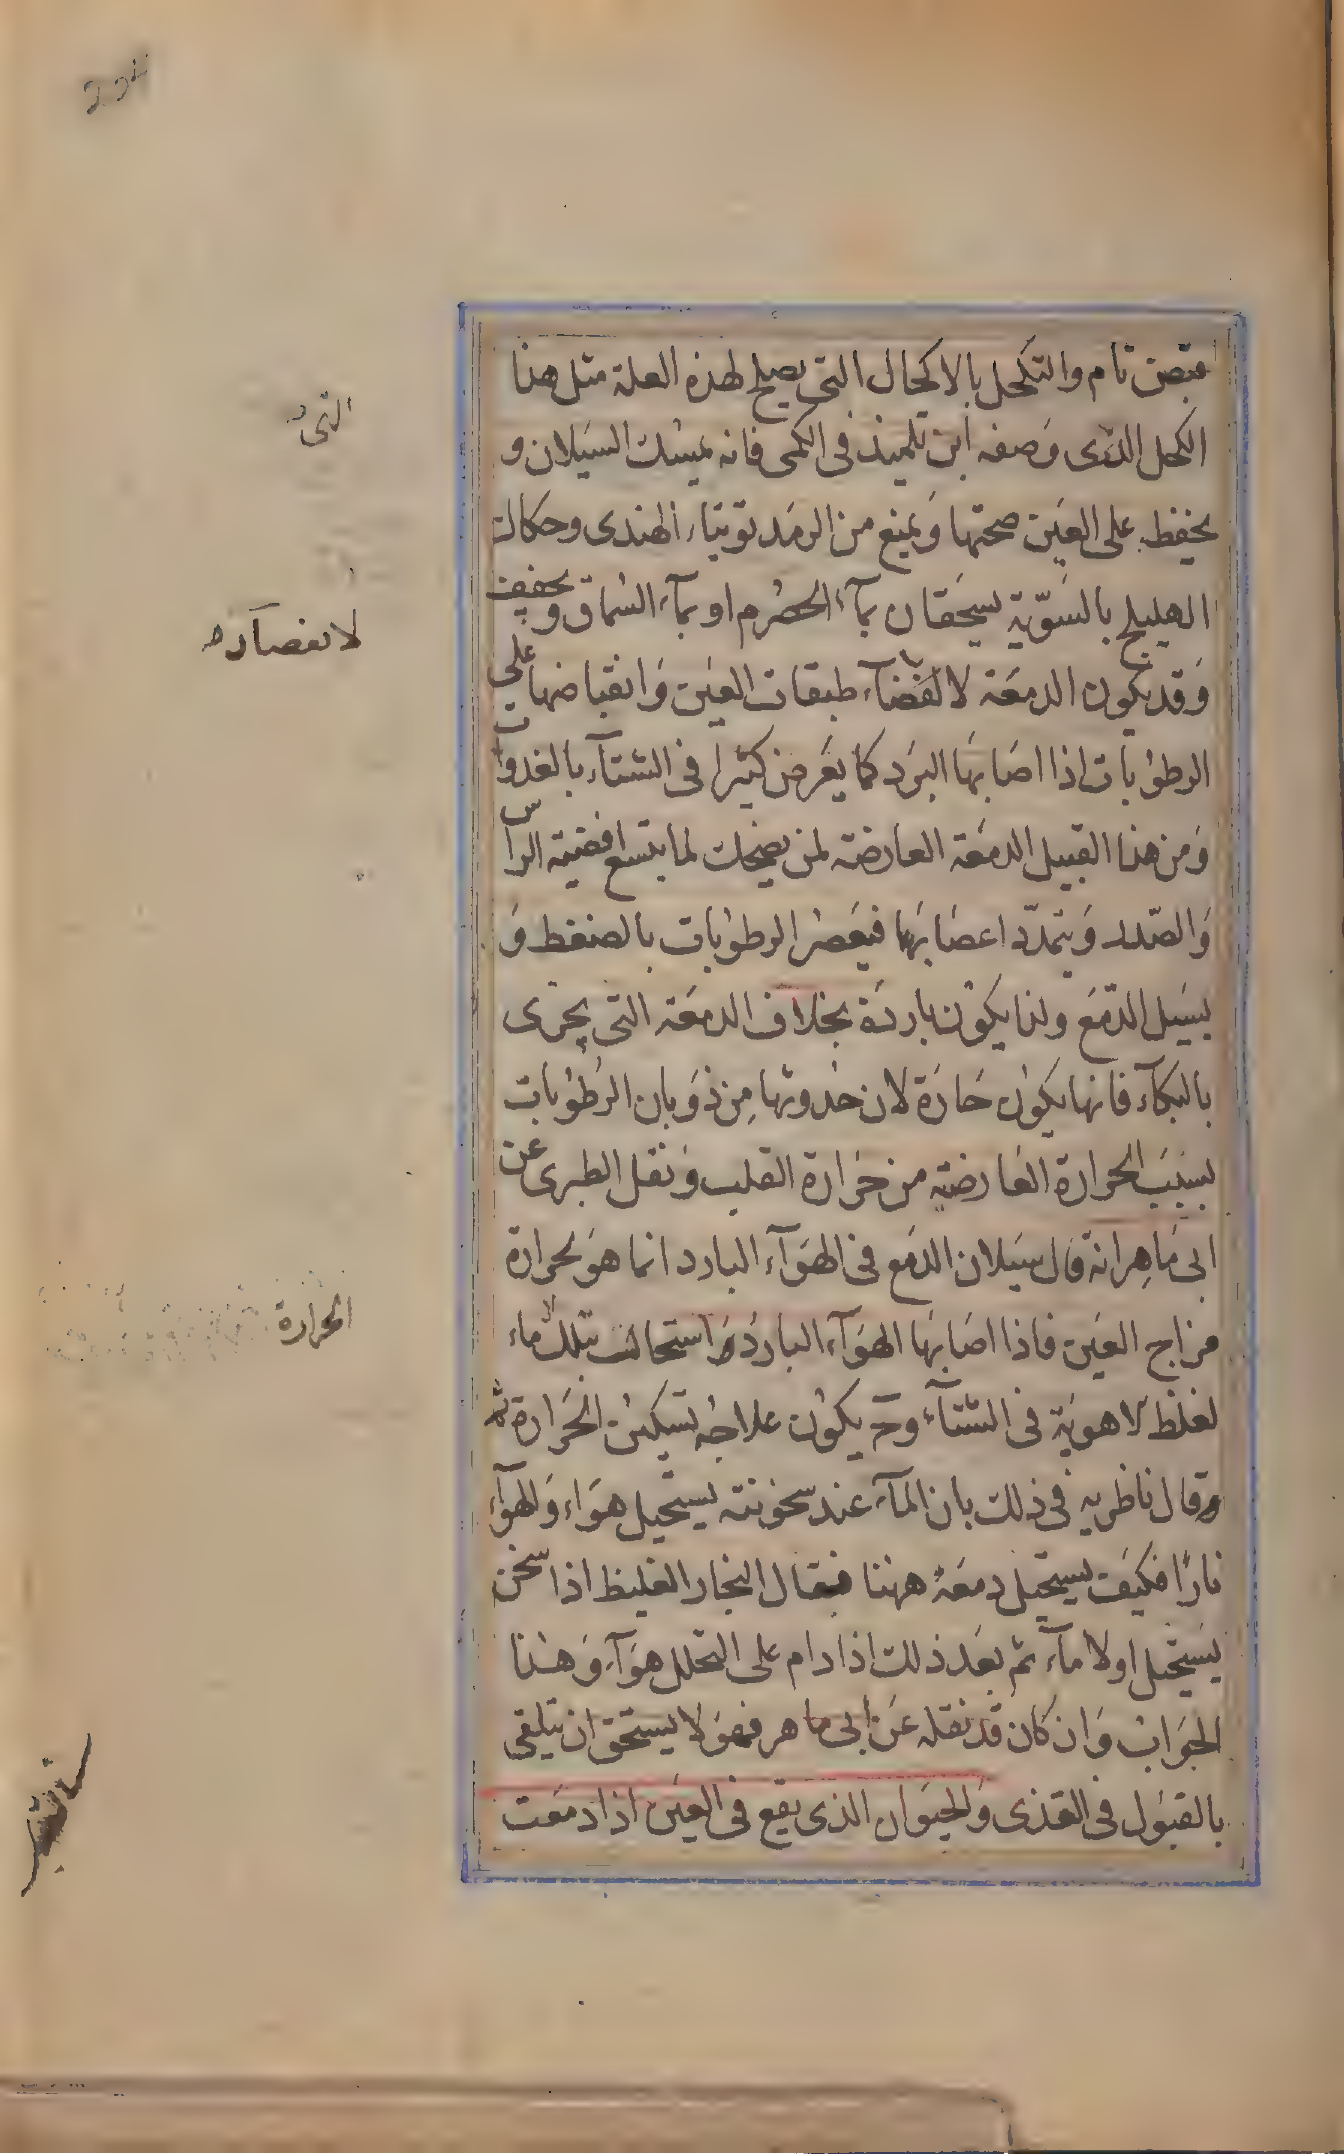 204
قبض تام والتكحل بالاكحال التى يصلح لهذه العلة مثل هذا
الكحل الذى وصفه ابن تلميذ فى الكمى فانه يمسك السيلان و
يحفظ على العين صحتها ويمنع من الرمد توتياء الهندى وحكاك
الهليلج بالسّوية يسحقان بمآء الحصرم او بمآء السماق ويجفف
وقد يكون الدمعة لا طبقات العين وانقباضها على
الرطوبات اذا اصابها البرد كما يعرض كثيرا فى الشتآء بالغدوات
ومن هذا القبيل الدمعة العارضة لمن يضحك لما يتسع افضية الراس
والصّدر ويتمدّد اعصابها فيعصر الرطوبات بالضغط و
يسيل الدّمع ولذا يكون باردة بخلاف الدمعة التى يجرى
بالبكآء فانها يكون حارة لان حدوثها من ذوبان الرطوبات
بسبب الحرارة العارضة من حرارة القلب ونقل الطبرى عن
ابى ماهر انه قال سيلان الدمع فى الهوآء البارد انما هو لحرارة
مزاج العين فاذا اصابها الهوآء البارد استحالت تلك ماء
لغلظ الاهوية فى الشتآء وح يكون علاجه تسكين الحرارة ثم
وقال ناظريه فى ذلك بان المآء عند سخونته يستحيل هواء والهوآء
نارًا فكيف يستحيل دمعة ههنا فقال البخار الغليظ اذا سخن
يستحيل اولا مآء ثم بعد ذلك اذا دام على التحلل هوآء وهذا
الجواب وان كان قد نقله عن ابى ماهر فهو لا يستحق ان يتلقى
بالقبول فى القذى والحيوان الذى يقع فى العين اذا دمعت
التى
الحرارة